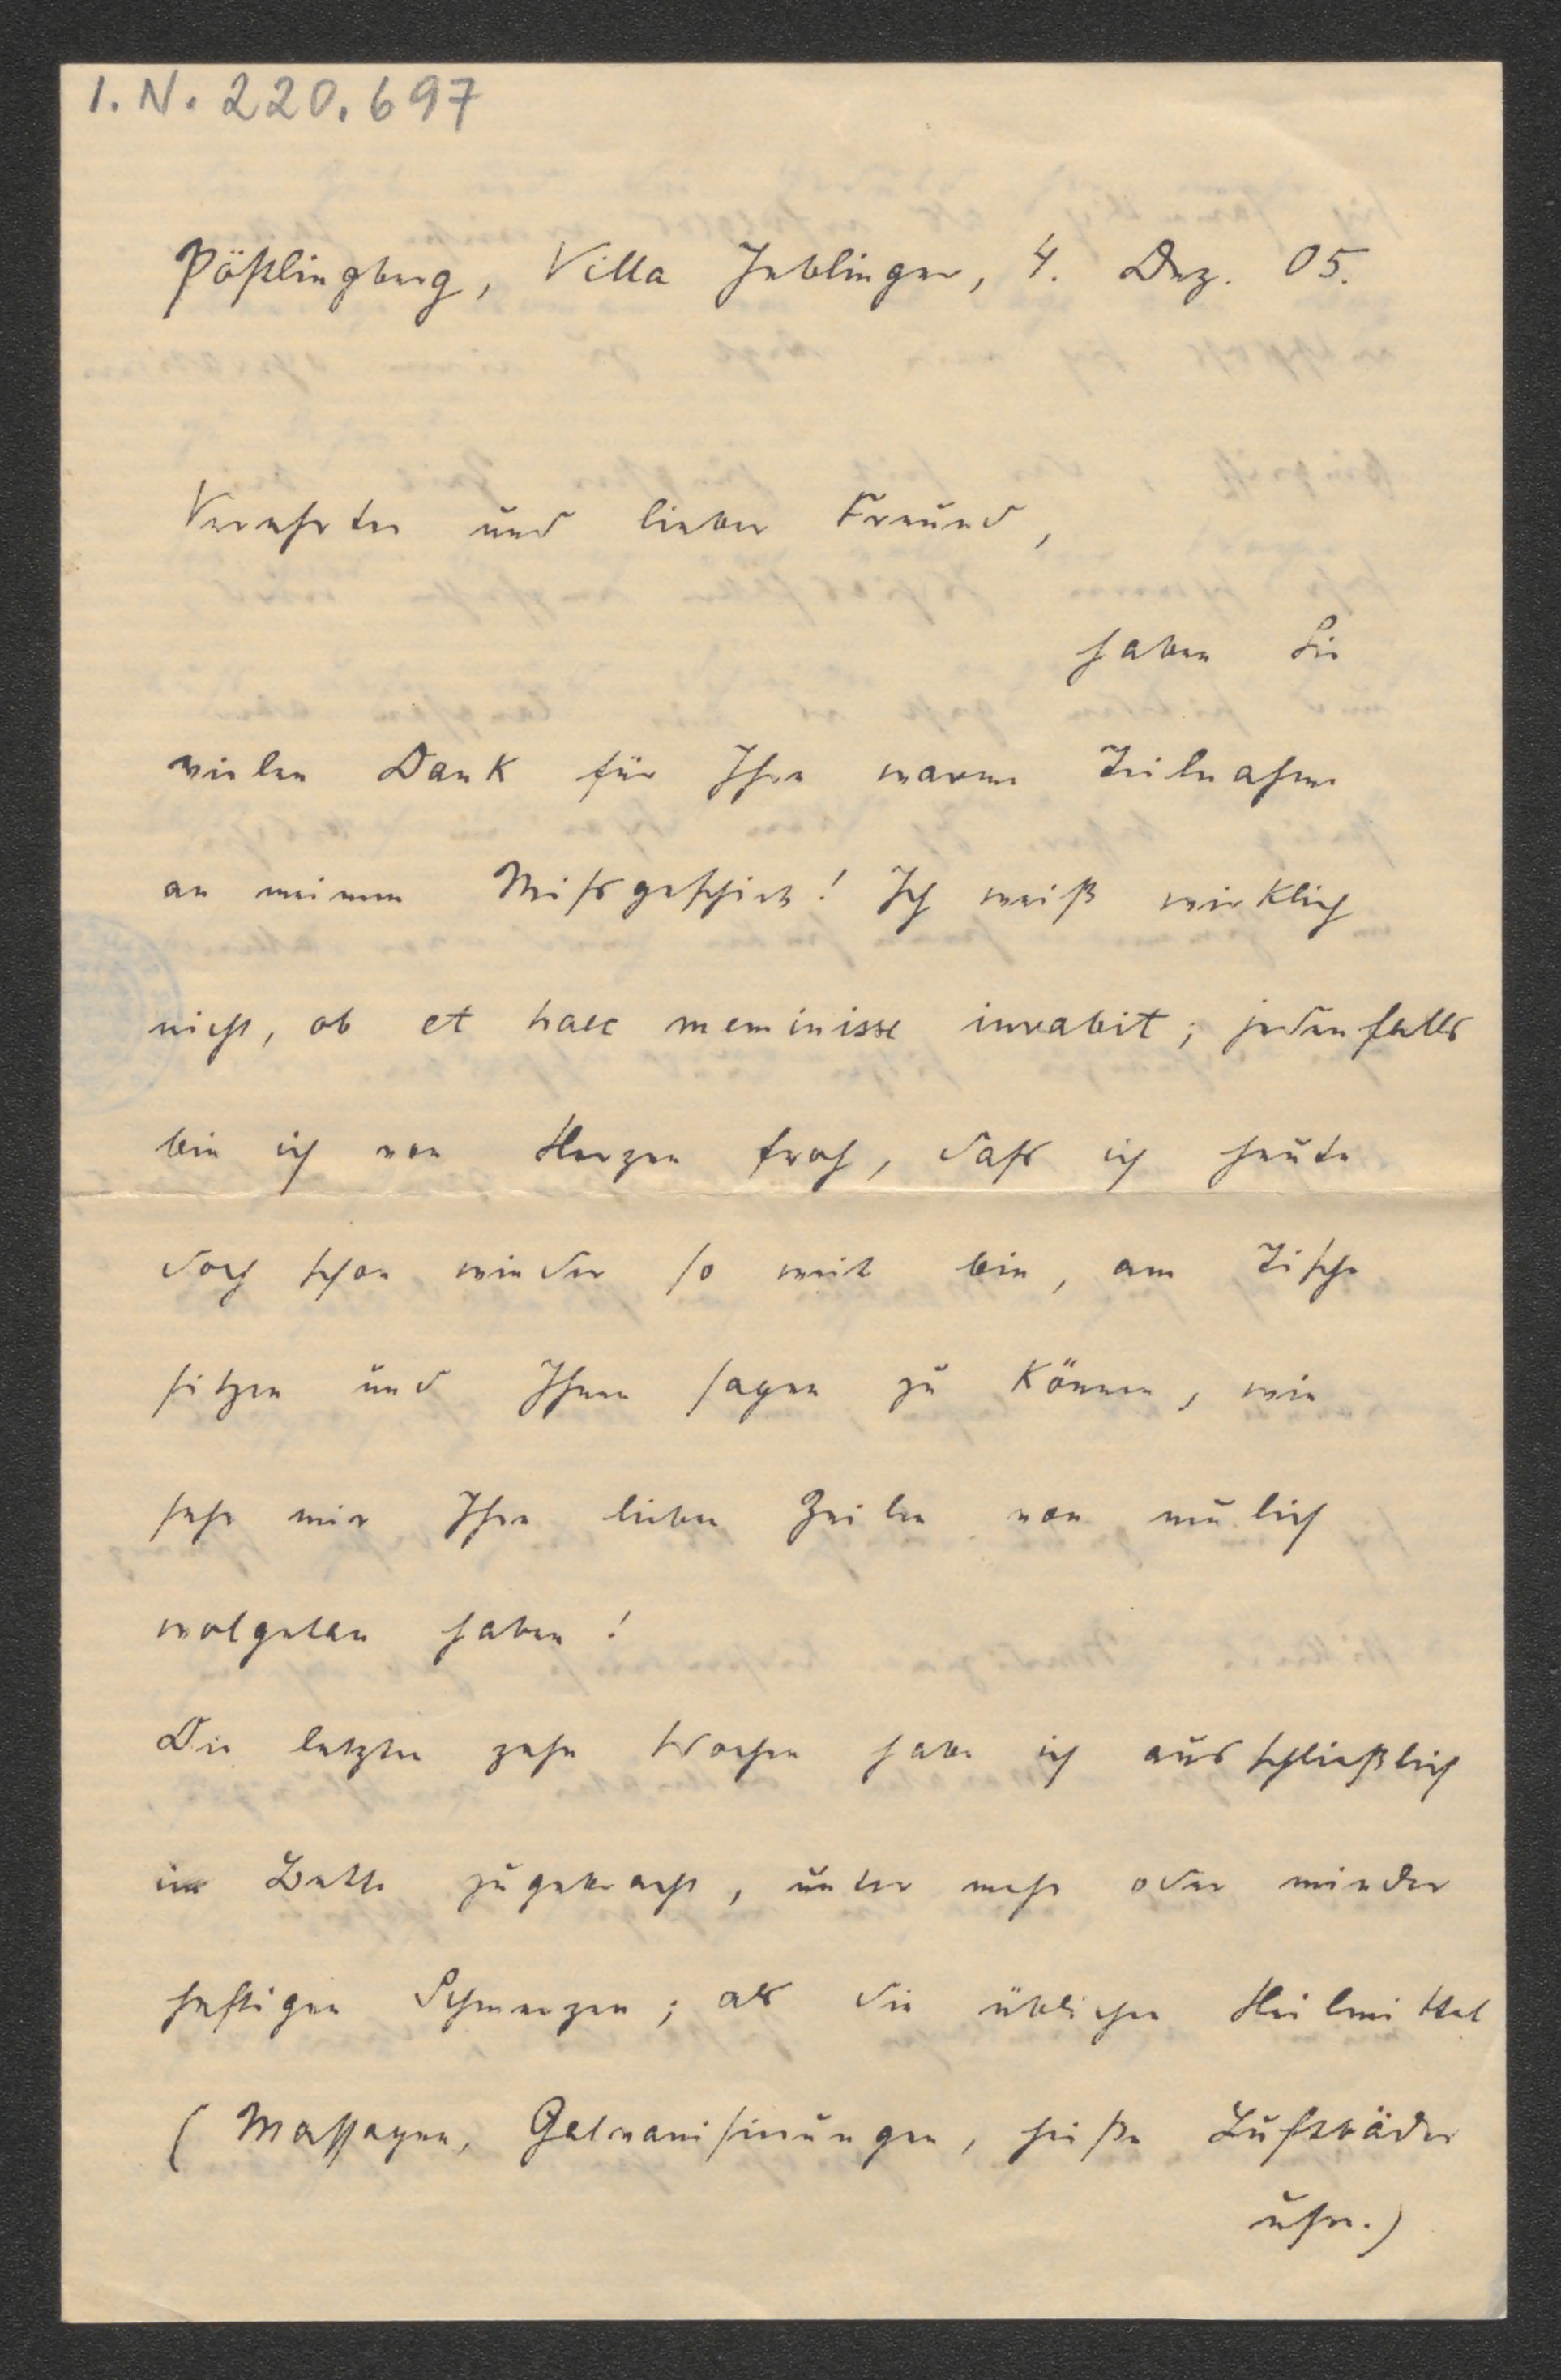 I. N. 220.697
Pöstlingberg, Villa Jeblinger, 4. Dez. 05.
Verehrter und lieber Freund,
haben Sie
vielen Dank für Ihre warme Teilnahme
an meinem Missgeschick! Ich weiß wirklich
nicht, ob et haec meminisse iuvabit; jedenfalls
bin ich von Herzen froh, dass ich heute
doch schon wieder so weit bin, am Tische
sitzen und Ihnen sagen zu können, wie
sehr mir Ihre lieben Zeilen von neulich
wolgetan haben!
Die letzten zehn Wochen habe ich ausschließlich
im Bette zugebracht, unter mehr oder minder
heftigen Schmerzen; als die üblichen Heilmittel
(Massagen, Galvanisirungen, heiße Luftbäder
usw.)